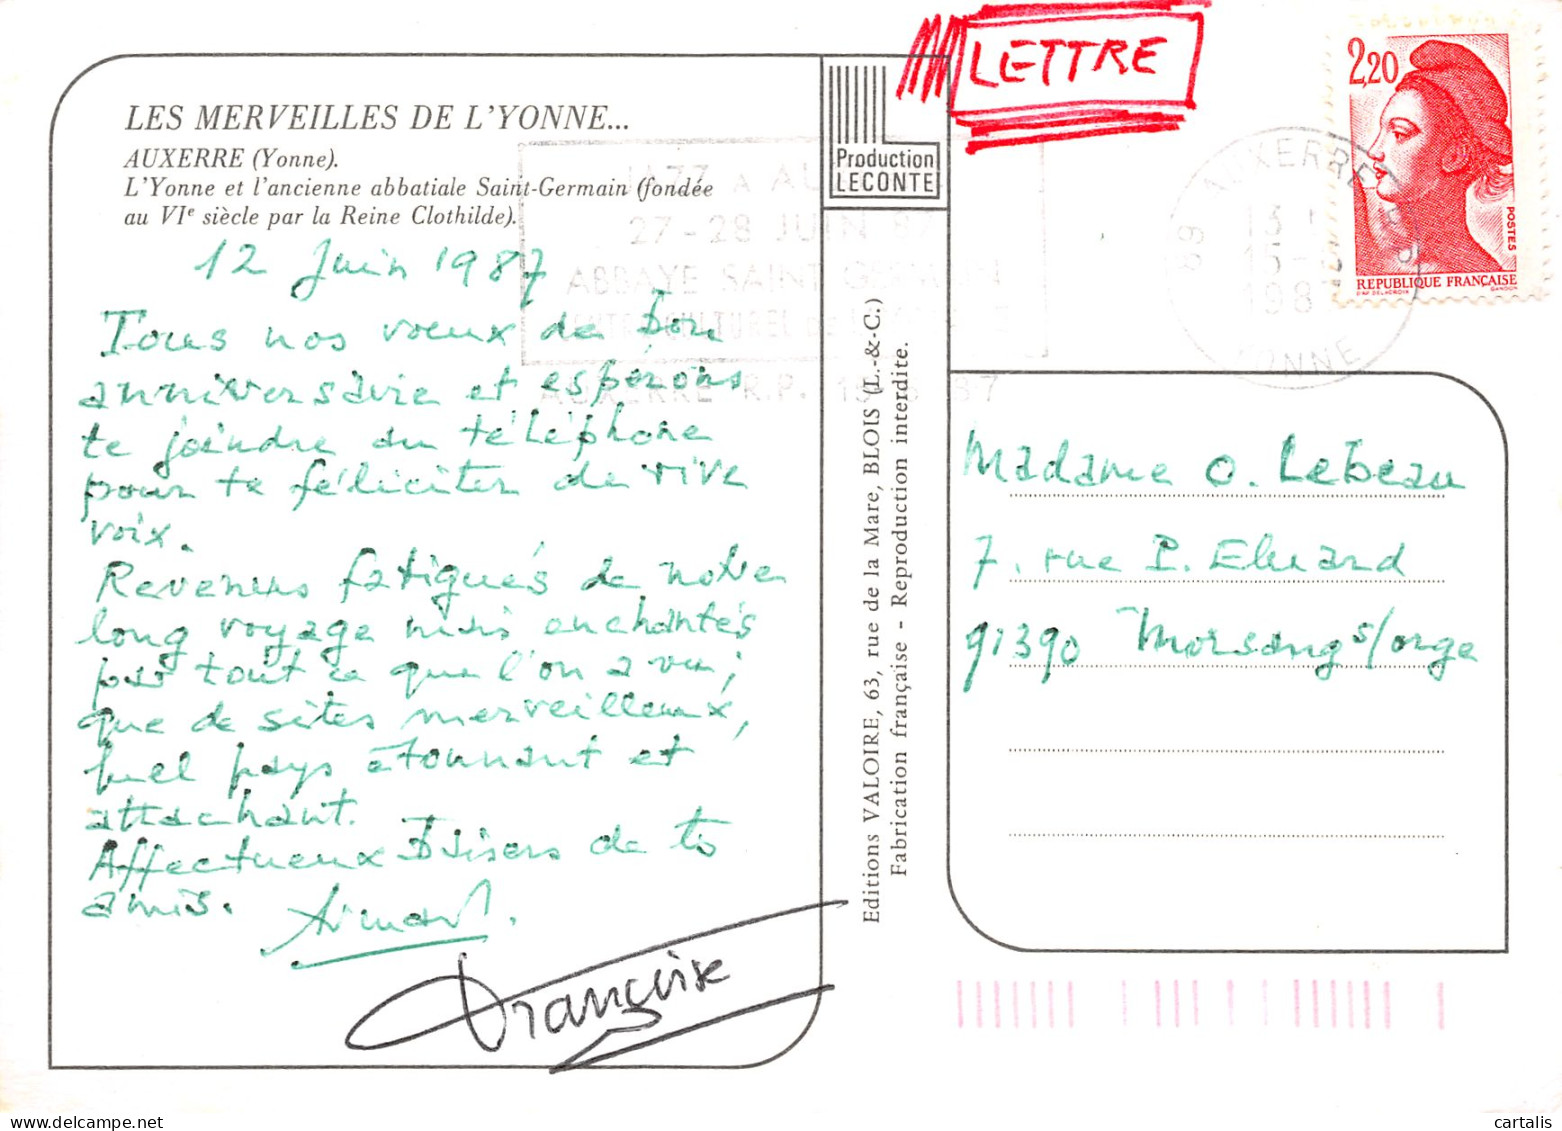 LETTRE
2,20
POSTES
REPUBLIQUE FRANÇAISE
D'AP. DELACROIX GANDON
89 AUXERRE R.P.
1987
YONNE
LES MERVEILLES DE L'YONNE...
AUXERRE (Yonne).
L'Yonne et l'ancienne abbatiale Saint-Germain (fondée
au VIe siècle par la Reine Clothilde).
Production
LECONTE
JAZZ A AU
27-28 JUIN 87
ABBAYE SAINT GERMAIN
CULTUREL DE L'YONNE
AUXERRE R.P. 15 6 87
12 Juin 1987
Tous nos voeux de bon
anniversaire et espérons
te joindre au téléphone
pour te féliciter de vive
voix.
Revenus fatigués de notre
long voyage mais enchantés
par tout ce que l'on a vu;
que de sites merveilleux,
quel pays étonnant et
attachant.
Affectueux Baisers de ts
amis.
Armand.
Françoise
Editions VALOIRE, 63, rue de la Mare, BLOIS (L.-&-C.)
Fabrication française - Reproduction interdite.
Madame O. Lebeau
7. rue P. Eluard
91390 Morsang s/orge
www.cartalis.com
cartalis